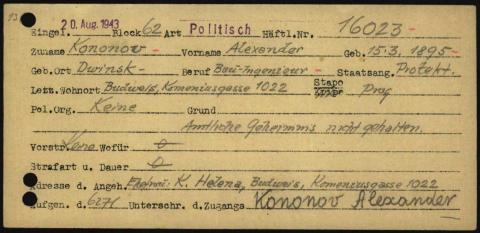 20. Aug. 1943
Eingel. Block 62 Art Politisch Häftl.Nr. 16023
Zuname Kononov Vorname Alexander Geb. 15.3.1895
Geb.Ort Dwinsk Beruf Bau-Ingenieur Staatsang. Protekt.
Letz.Wohnort Budweis, Komeniusgasse 1022 Stapo Prag
Pol.Org. Keine Grund
Amtliche Geheimnis nicht gehalten.
Vorstr. Keine Wofür
Strafart u. Dauer
Adresse d. Angeh. Ehefrau: K. Helena, Budweis, Komeniusgasse 1022
Aufgen. d. Unterschr. d. Zugangs Kononov Alexander